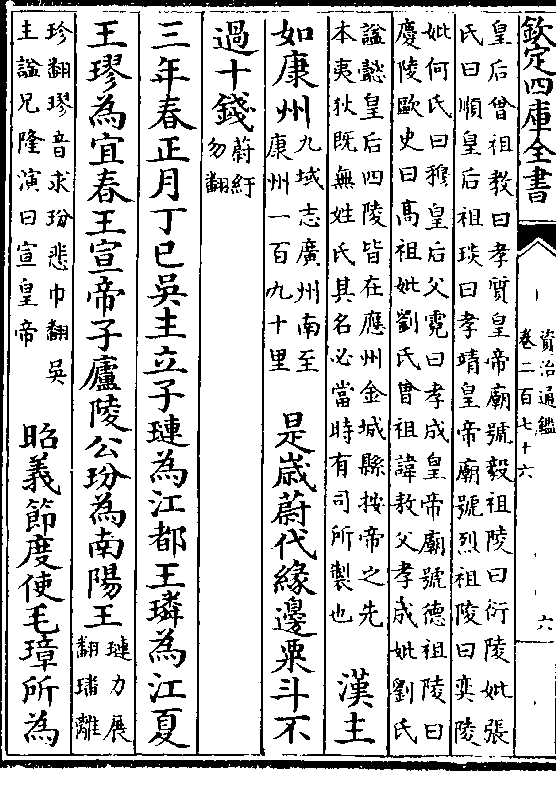 欽定四庫全書
資治通鑑
卷二百七十六
六
皇后曾祖教曰孝質皇帝廟號毅祖陵曰衍陵妣張
氏曰順皇后祖琰曰孝靖皇帝廟號烈祖陵曰奕陵
妣何氏曰穆皇后父霓曰孝成皇帝廟號德祖陵曰
慶陵歐史曰髙祖妣劉氏曾祖諱教父孝成妣劉氏
諡懿皇后四陵皆在應州金城縣按帝之先
本夷狄既無姓氏其名必當時有司所製也
漢主
如康州
九域志廣州南至
康州一百九十里
是嵗蔚代緣邊粟斗不
過十錢
蔚紆
勿翻
三年春正月丁巳吳主立子璉為江都王璘為江夏
王璆為宜春王宣帝子廬陵公玢為南陽王
璉力展
翻璘離
珍翻璆音求玢悲巾翻吳
主諡兄隆演曰宣皇帝
昭義節度使毛璋所為